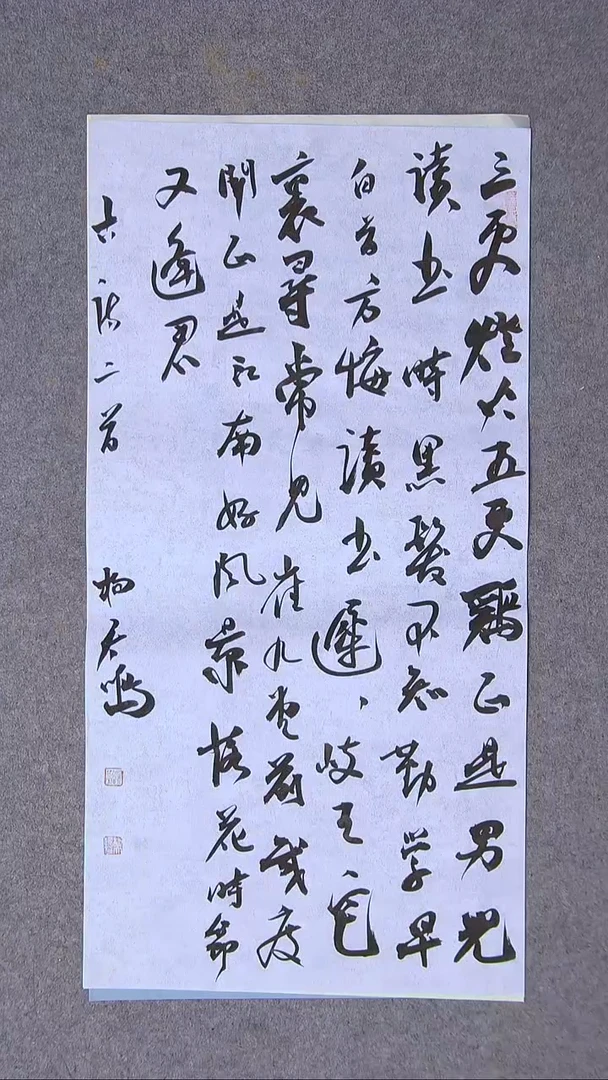 三更燈火五更鷄正是男兒
讀书時黑髮不知勤学早
白首方悔讀书遲、岐王宅
裏尋常見崔九堂前幾度
聞正是江南好风景落花時節
又逢君
古诗二首